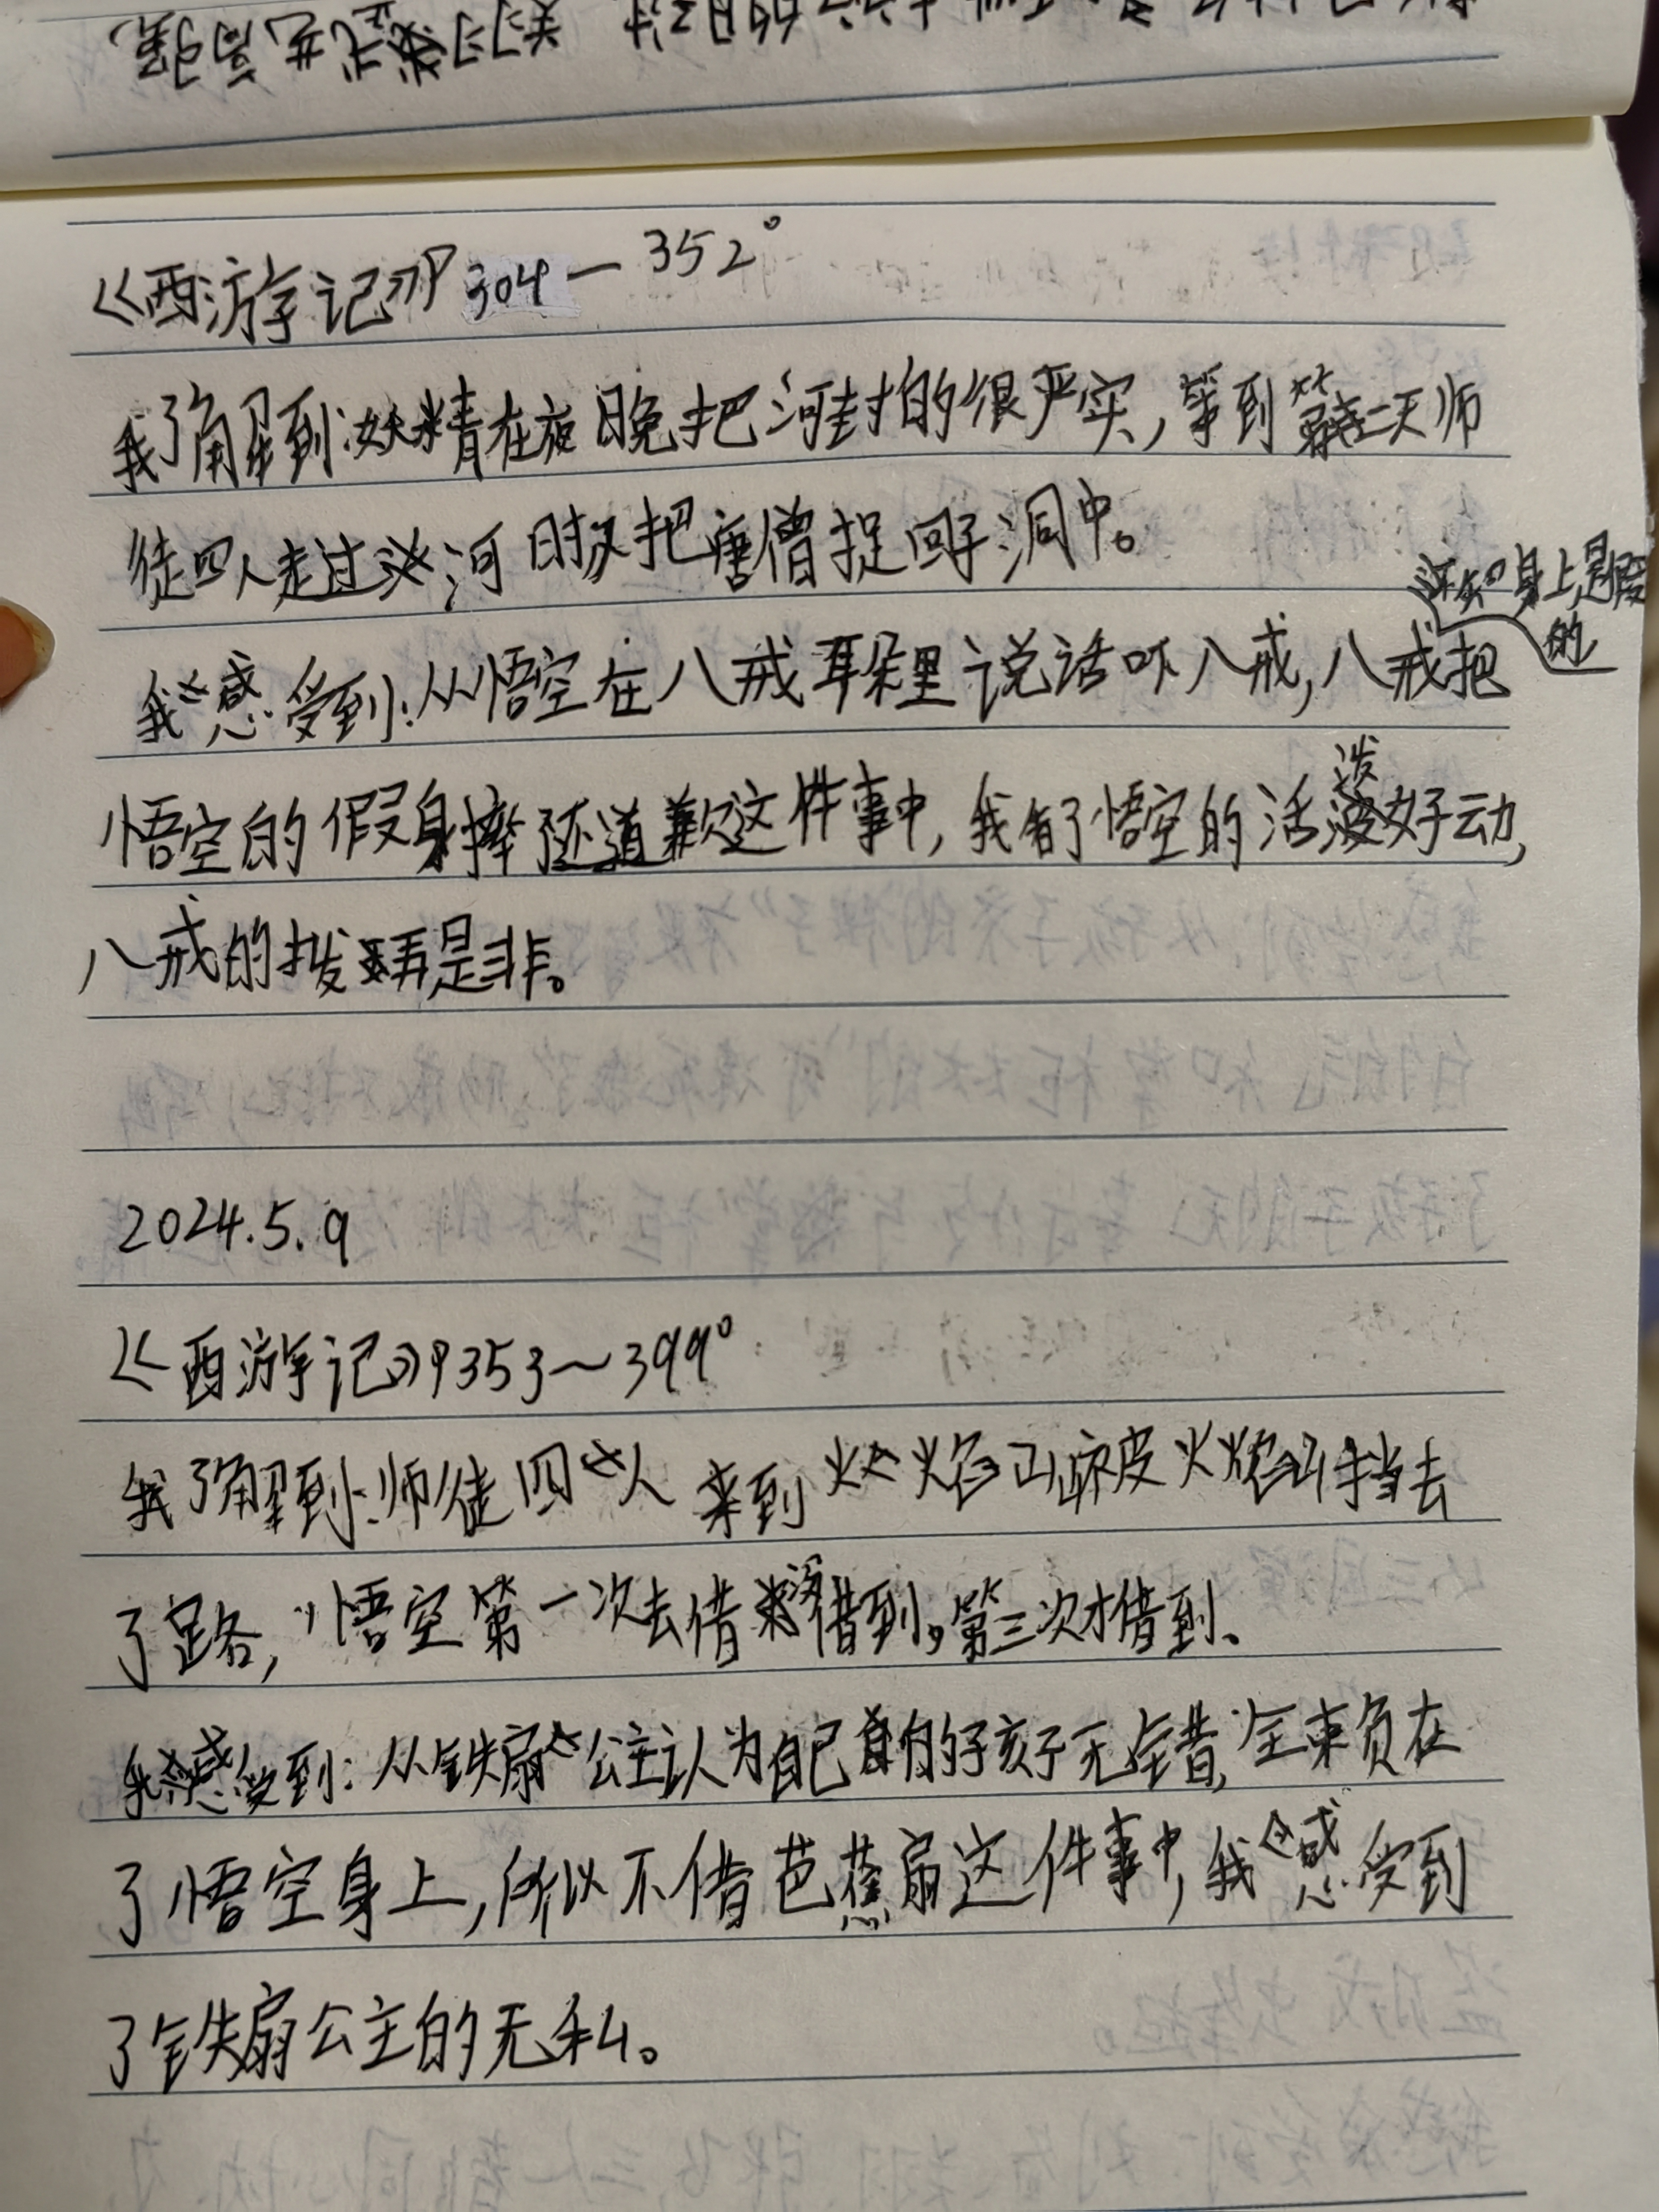 《西游记》P304—352。
我了解到:妖精在夜晚把河封的很严实,等到第二天师
徒四人走过河时又把唐僧捉回了洞中。
还知身上是假
的
我感受到:从悟空在八戒耳朵里说话吓八戒,八戒把
悟空的假身摔了还道歉这件事中,我看了悟空的活泼好动,
八戒的拨弄是非。
2024.5.9
《西游记》P353~399。
我了解到:师徒四人来到火焰山前被火焰山挡去
了路,悟空第一次去借没借到,第三次才借到。
我感受到:从铁扇公主认为自己的孩子无错,全束负在
了悟空身上,所以不借芭蕉扇这件事中,我感受到
了铁扇公主的无私。